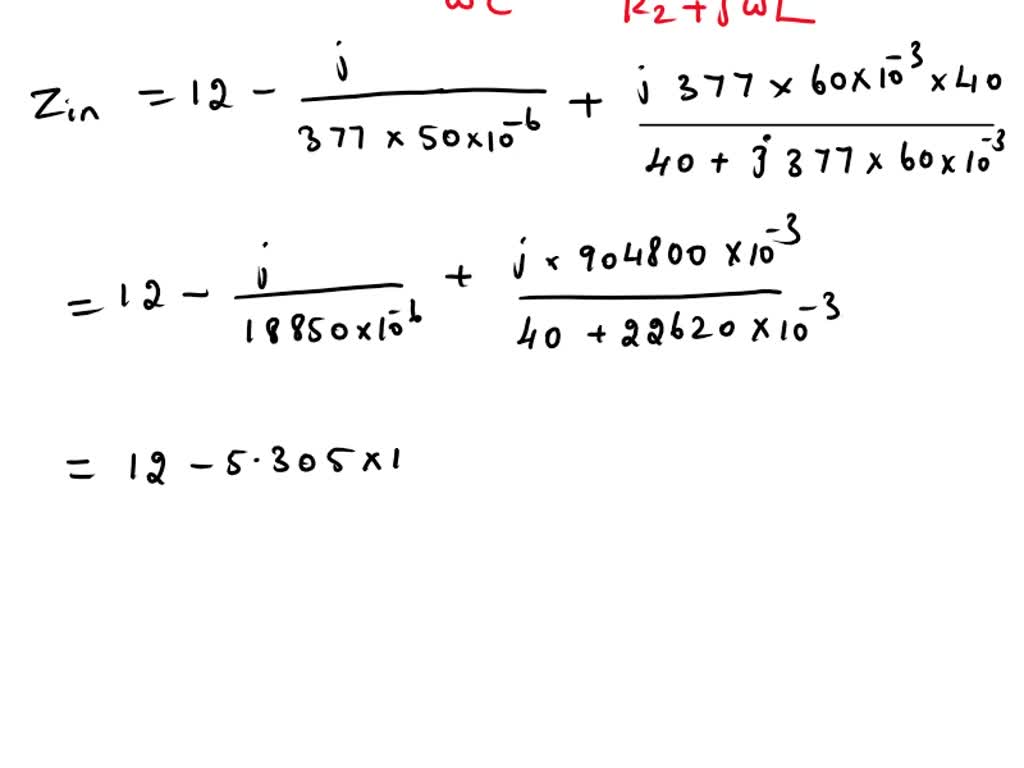 ωC R2 + jωL
Zin = 12 - j / (377 × 50×10^-6) + (j 377 × 60×10^-3 × 40) / (40 + j 377 × 60×10^-3)
= 12 - j / (18850×10^-6) + (j × 904800 ×10^-3) / (40 + 22620 ×10^-3)
= 12 - 5.305 × 1